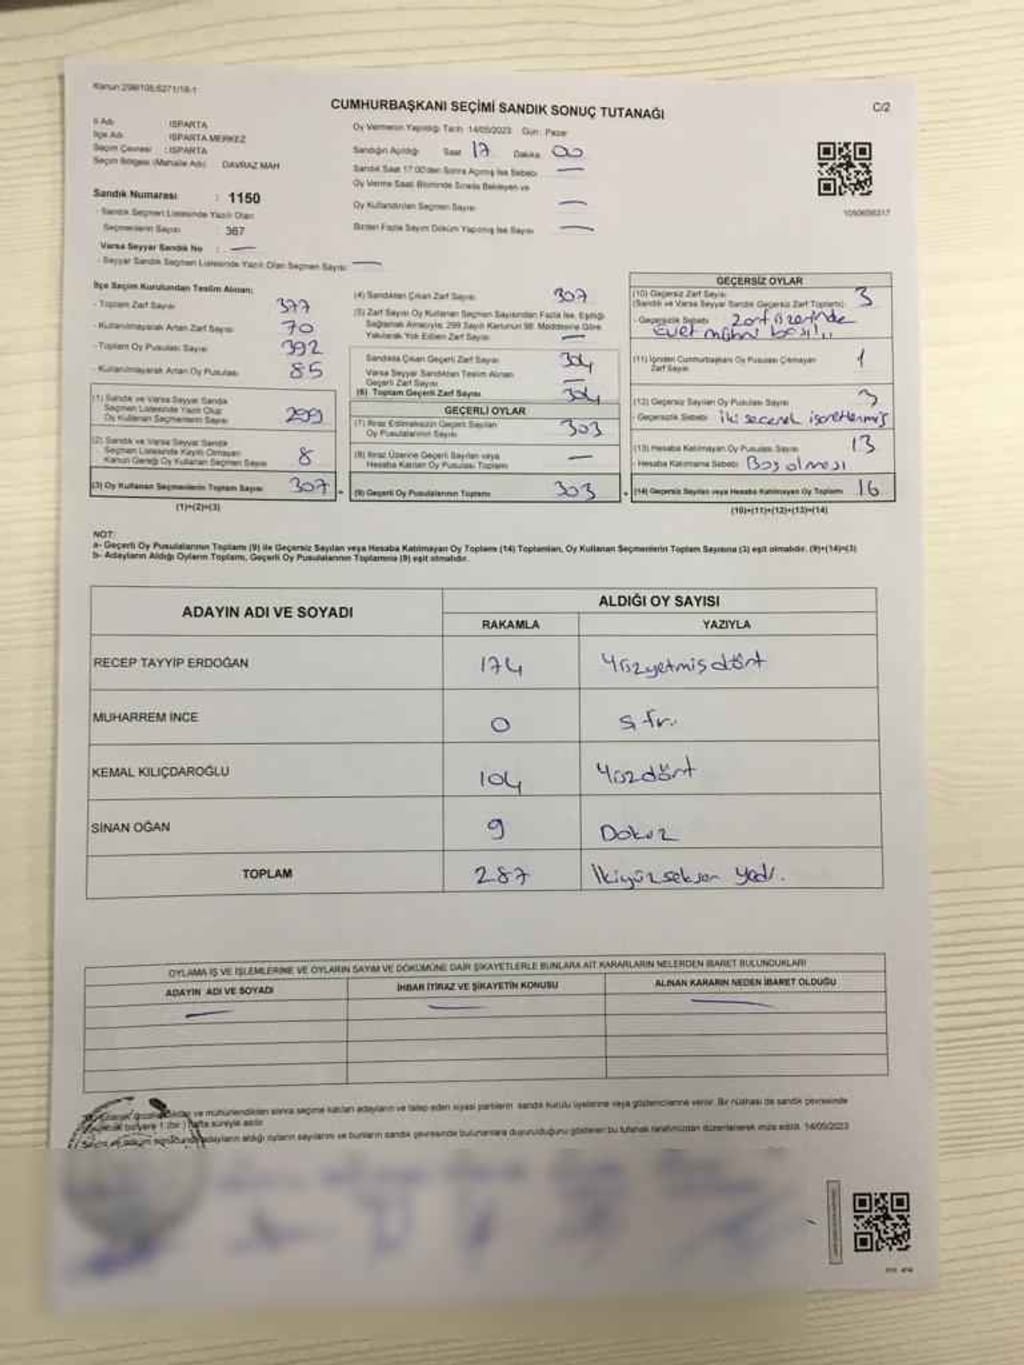 Kanun 298/105;6271/18-1
CUMHURBAŞKANI SEÇİMİ SANDIK SONUÇ TUTANAĞI
C/2
İl Adı : ISPARTA
İlçe Adı : ISPARTA MERKEZ
Seçim Çevresi : ISPARTA
Seçim Bölgesi (Mahalle Adı) DAVRAZ MAH
Sandık Numarası : 1150
- Sandık Seçmen Listesinde Yazılı Olan
Seçmenlerin Sayısı : 367
Varsa Seyyar Sandık No : —
- Seyyar Sandık Seçmen Listesinde Yazılı Olan Seçmen Sayısı: —
Oy Vermenin Yapıldığı Tarih 14/05/2023 Gün: Pazar
Sandığın Açıldığı Saat 17 Dakika 00
Sandık Saat 17.00'den Sonra Açılmış İse Sebebi —
Oy Verme Saati Bitiminde Sırada Bekleyen ve
Oy Kullandırılan Seçmen Sayısı —
Birden Fazla Sayım Döküm Yapılmış İse Sayısı —
İlçe Seçim Kurulundan Teslim Alınan:
- Toplam Zarf Sayısı 377
- Kullanılmayarak Artan Zarf Sayısı 70
- Toplam Oy Pusulası Sayısı 392
- Kullanılmayarak Artan Oy Pusulası 85
(1) Sandık ve Varsa Seyyar Sandık
Seçmen Listesinde Yazılı Olup
Oy Kullanan Seçmenlerin Sayısı 299
(2) Sandık ve Varsa Seyyar Sandık
Seçmen Listesinde Kayıtlı Olmayan
Kanun Gereği Oy Kullanan Seçmen Sayısı 8
(3) Oy Kullanan Seçmenlerin Toplam Sayısı 307
(1)+(2)=(3)
(4) Sandıktan Çıkan Zarf Sayısı 307
(5) Zarf Sayısı Oy Kullanan Seçmen Sayısından Fazla İse, Eşitliği
Sağlamak Amacıyla; 298 Sayılı Kanunun 98. Maddesine Göre
Yakılarak Yok Edilen Zarf Sayısı —
Sandıkta Çıkan Geçerli Zarf Sayısı 304
Varsa Seyyar Sandıktan Teslim Alınan
Geçerli Zarf Sayısı —
(6) Toplam Geçerli Zarf Sayısı 304
GEÇERLİ OYLAR
(7) İtiraz Edilmeksizin Geçerli Sayılan
Oy Pusulalarının Sayısı 303
(8) İtiraz Üzerine Geçerli Sayılan veya
Hesaba Katılan Oy Pusulası Toplamı —
(9) Geçerli Oy Pusulalarının Toplamı 303
GEÇERSİZ OYLAR
(10) Geçersiz Zarf Sayısı 3
(Sandık ve Varsa Seyyar Sandık Geçersiz Zarf Toplamı)
- Geçersizlik Sebebi zarf üzerinde
Evet mührü basılı
(11) İçinden Cumhurbaşkanı Oy Pusulası Çıkmayan
Zarf Sayısı 1
(12) Geçersiz Sayılan Oy Pusulası Sayısı 3
- Geçersizlik Sebebi iki seçenek işaretlenmiş
(13) Hesaba Katılmayan Oy Pusulası Sayısı 13
- Hesaba Katılmama Sebebi Boş olması
(14) Geçersiz Sayılan veya Hesaba Katılmayan Oy Toplamı 16
(10)+(11)+(12)+(13)=(14)
NOT:
a- Geçerli Oy Pusulalarının Toplamı (9) ile Geçersiz Sayılan veya Hesaba Katılmayan Oy Toplamı (14) Toplamları, Oy Kullanan Seçmenlerin Toplam Sayısına (3) eşit olmalıdır. (9)+(14)=(3)
b- Adayların Aldığı Oyların Toplamı, Geçerli Oy Pusulalarının Toplamına (9) eşit olmalıdır.
ADAYIN ADI VE SOYADI
ALDIĞI OY SAYISI
RAKAMLA YAZIYLA
RECEP TAYYİP ERDOĞAN 174 Yüzyetmişdört
MUHARREM İNCE 0 sıfır
KEMAL KILIÇDAROĞLU 104 Yüzdört
SİNAN OĞAN 9 Dokuz
TOPLAM 287 İkiyüzseksen yedi.
OYLAMA İŞ VE İŞLEMLERİNE VE OYLARIN SAYIM VE DÖKÜMÜNE DAİR ŞİKAYETLERLE BUNLARA AİT KARARLARIN NELERDEN İBARET BULUNDUKLARI
ADAYIN ADI VE SOYADI İHBAR İTİRAZ VE ŞİKAYETİN KONUSU ALINAN KARARIN NEDEN İBARET OLDUĞU
— — —
ve mühürlendikten sonra seçime katılan adayların ve talep eden siyasi partilerin sandık kurulu üyelerine veya gözlemcilerine verilir. Bir nüshası da sandık çevresinde
1 (bir) hafta süreyle asılır.
adayların aldığı oyların sayılarını ve bunların sandık çevresinde bulunanlara duyurulduğunu gösteren bu tutanak tarafımızdan düzenlenerek imza edildi. 14/05/2023